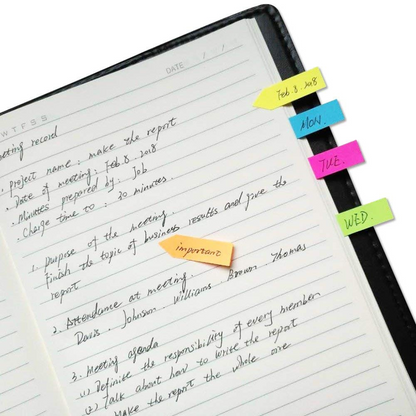 W T F S S
DATE / /
eeting record
. Project name : make the report
. Date of meeting : Feb 8 . 2018
. Minutes prepared by : Job
. Charge time to : 30 minutes.
1. Purpose of the meeting.
Finish the topic of business results and give the
report
important
2. Attendance at meeting.
Davis . Johnson . Williams Brown Thomas
3. Meeting agenda
(1) Definise the responsibility of every member
(2) talk about how to write the report
Make the report the whole one
Feb 8 . 2018
MON.
TUE.
WED.